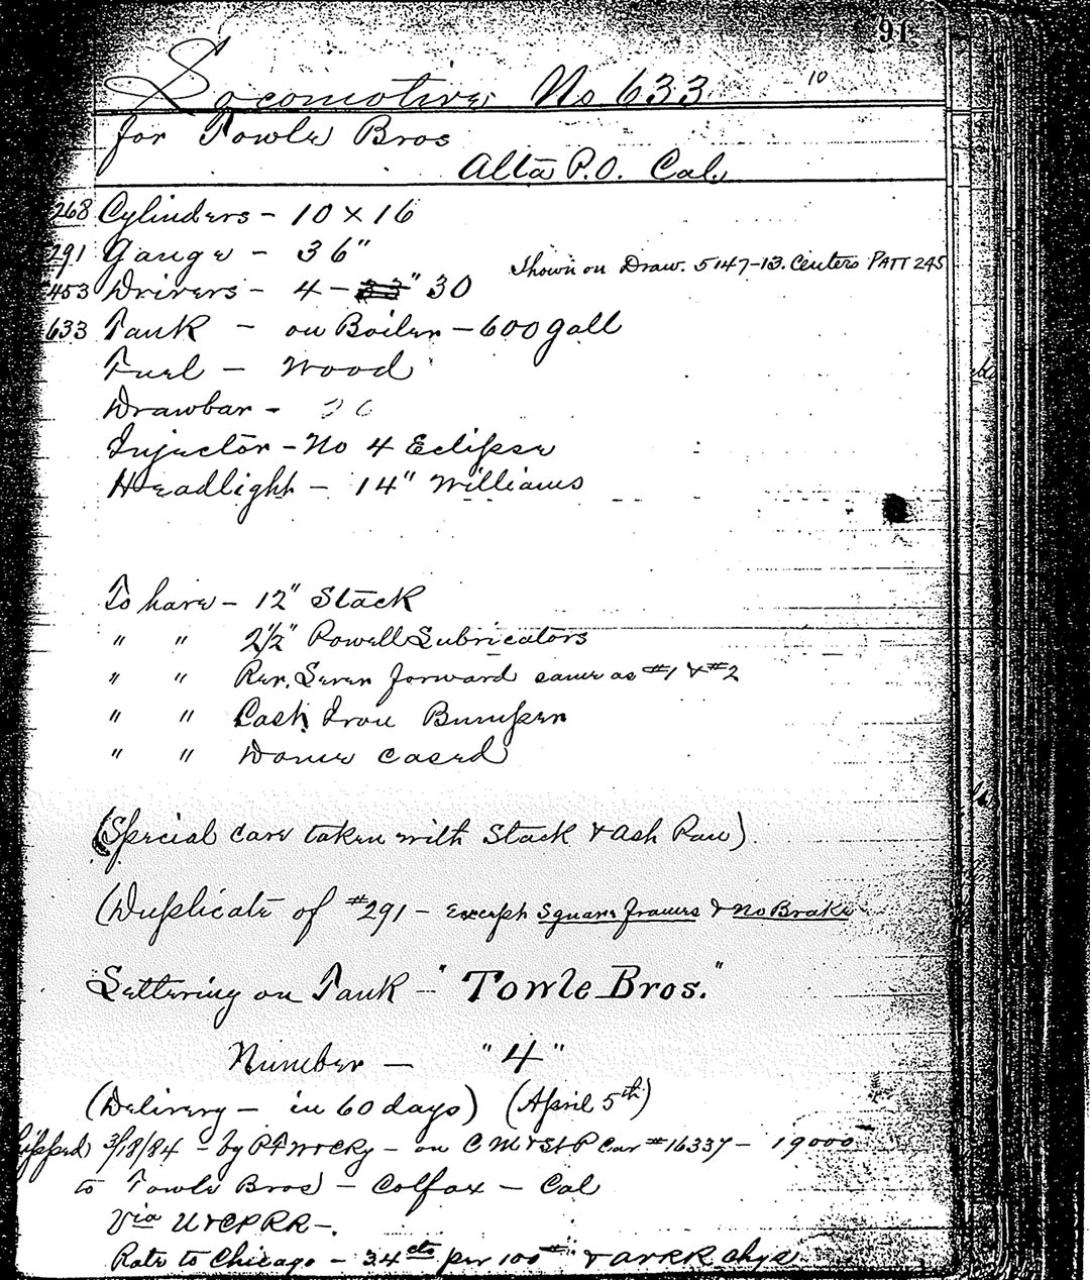 91
Locomotive No 633 10
for Towle Bros
Alta P.O. Cal
268 Cylinders - 10 x 16
291 Gauge - 36"
Shown on Draw. 5147-13. Centers PATT 245
453 Drivers - 4 - 33" 30
633 Tank - on Boiler - 600 gall
Fuel - Wood
Drawbar - 26
Injector - No 4 Eclipse
Headlight - 14" Williams
To have - 12" Stack
" " 2½" Powell Lubricators
" " Rev. Lever forward same as #1 & #2
" " Cast Iron Bumper
" " Dome cased
(Special care taken with Stack & Ash Pan)
(Duplicate of #291 - except Square frames & No Brake
Lettering on Tank - "Towle Bros."
Number - "4"
(Delivery - in 60 days) (April 5th)
Shipped 3/18/84 - by P Ft W & C Ry - on C M & St P Car #16337 - 19000
to Towle Bros - Colfax - Cal
Via U & CPRR -.
Rate to Chicago - 34 cts per 100 # & chgs.